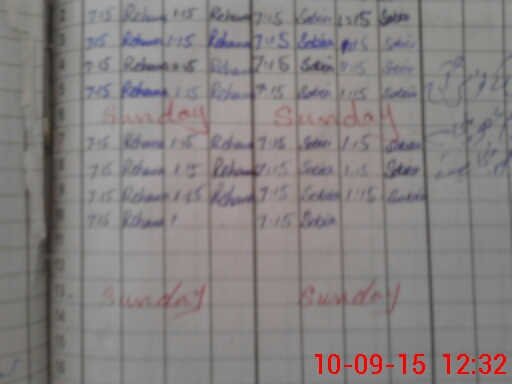 2 7:15 Rehana 1:15 Rehana 7:15 Sobia 1:15 Sobia
3 7:15 Rehana 1:15 Rehana 7:15 Sobia 1:15 Sobia
4 7:15 Rehana 1:15 Rehana 7:15 Sobia 1:15 Sobia
5 7:15 Rehana 1:15 Rehana 7:15 Sobia 1:15 Sobia
6 Sunday Sunday
7 7:15 Rehana 1:15 Rehana 7:15 Sobia 1:15 Sobia
8 7:15 Rehana 1:15 Rehana 7:15 Sobia 1:15 Sobia
9 7:15 Rehana 1:15 Rehana 7:15 Sobia 1:15 Sobia
10 7:15 Rehana 7:15 Sobia
11
12
13 Sunday Sunday
14
15
16
10-09-15 12:32